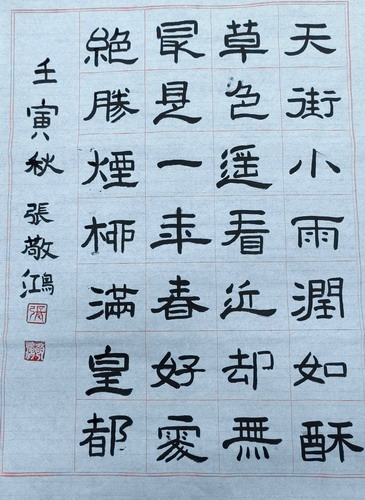 天街小雨潤如酥
草色遥看近却無
最是一年春好處
絕勝煙柳滿皇都
壬寅秋張敬鴻
張